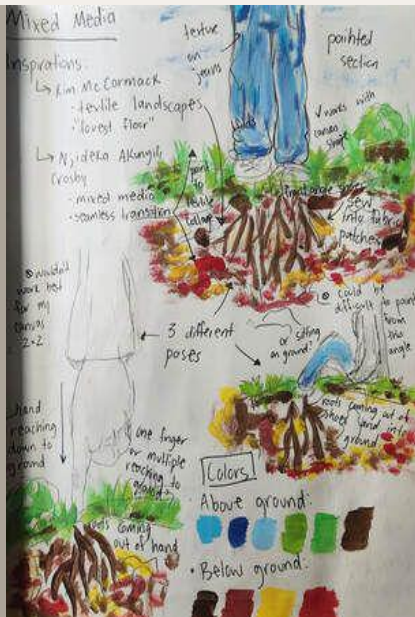 Mixed Media
Inspirations:
↳ Kim McCormack
- textile landscapes
- "forest floor"
↳ Njideka Akunyili
Crosby
- mixed media
- seamless transition
texture
on
jeans
painted
section
✓ works with
canvas
shape
paint
to
textile
front angle
sew
into fabric
patches
wouldn't
work best
for my
canvas
2x2
← 3 different
poses
or sitting
on ground?
could be
difficult to paint
from
this
angle
hand
reaching
down to
ground
one finger
or multiple
reaching to
ground?
roots coming out of
shoes and into
ground
roots coming
out of hand
Colors
· Above ground:
· Below ground: